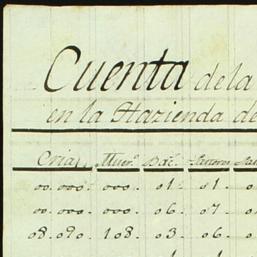 Cuenta de la
en la Hazienda de
Cria, Muer.
00.000. 000. 01. 01.
00.000. 000. 06. 07.
08.090. 108. 03. 06.